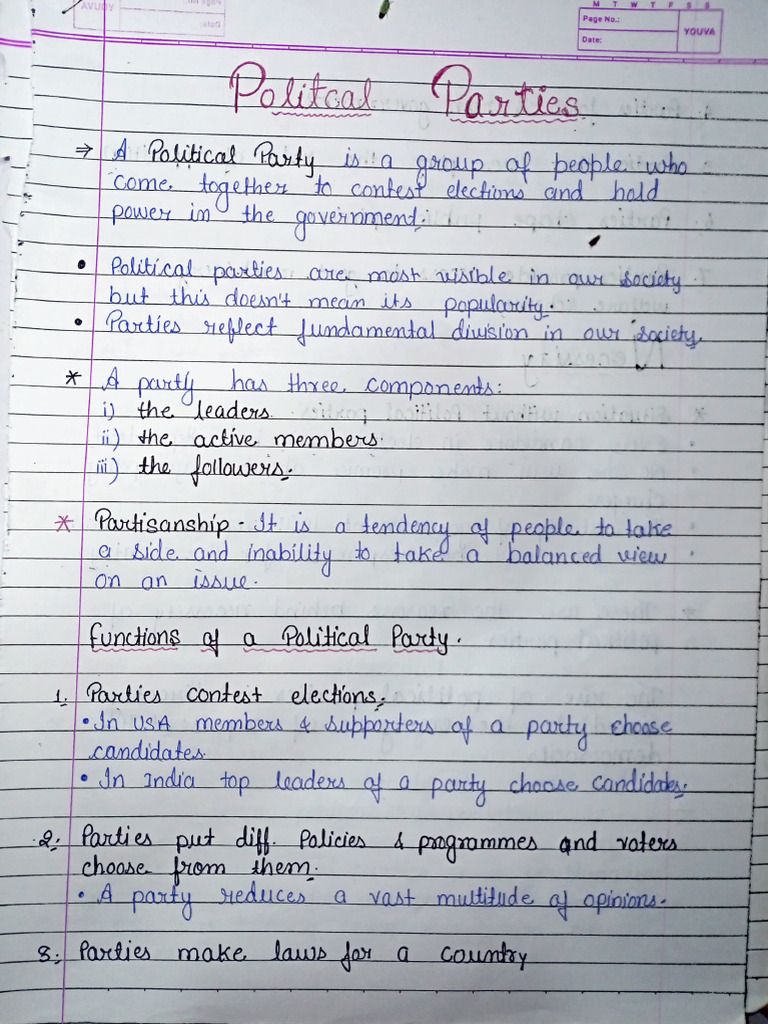 M T W T F S S
Page No.:
Date:
YOUVA
Politcal Parties
⇒ A Political Party is a group of people who
come together to contest elections and hold
power in the government.
• Political parties are most visible in our society
but this doesn't mean its popularity.
• Parties reflect fundamental division in our society
* A party has three components:
i) the leaders
ii) the active members.
iii) the followers.
* Partisanship - It is a tendency of people to take
a side and inability to take a balanced view
on an issue.
functions of a Political Party.
1. Parties contest elections.
• In USA members & supporters of a party choose
candidates.
• In India top leaders of a party choose candidates.
2. Parties put diff. Policies & programmes and voters
choose from them.
• A party reduces a vast multitude of opinions.
3. Parties make laws for a country